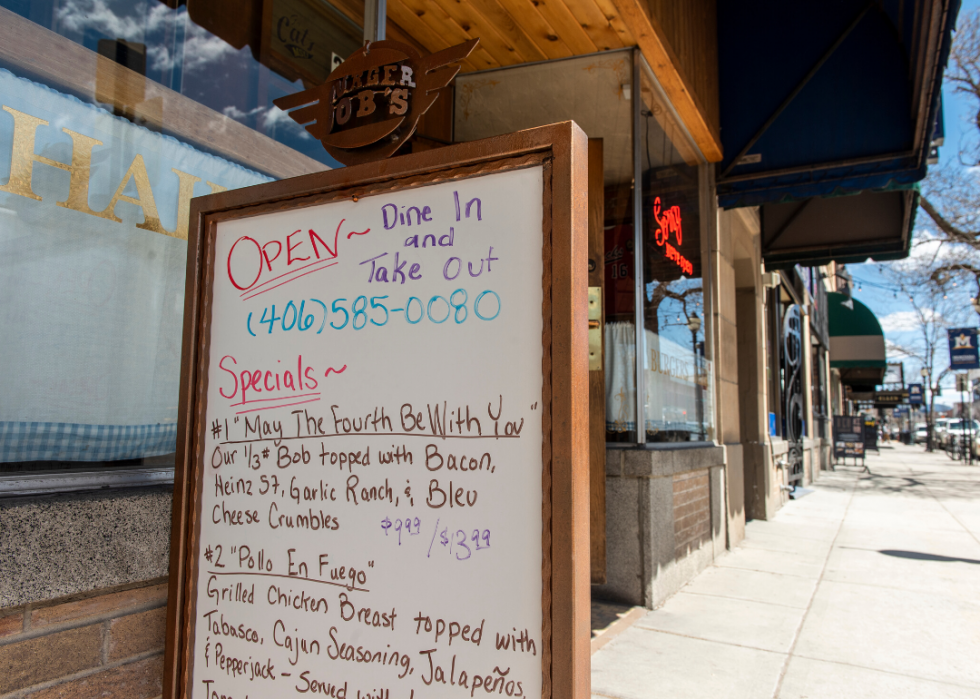 BURGER
BOB'S
HA
OPEN~ Dine In
and
Take Out
(406)585-0080
Specials~
#1 "May The Fourth Be With You"
Our 1/3# Bob topped with Bacon,
Heinz 57, Garlic Ranch, & Bleu
Cheese Crumbles $9.99 / $13.99
#2 "Pollo En Fuego"
Grilled Chicken Breast topped with
Tabasco, Cajun Seasoning, Jalapeños,
& Pepperjack - Served with